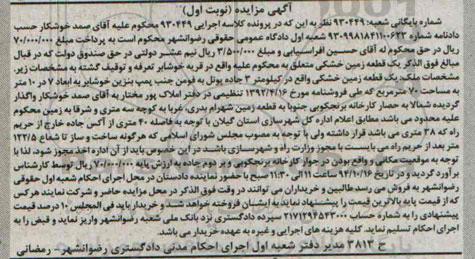 آگهی مزایده (نوبت اول)
شماره بایگانی شعبه: ۹۳۰۴۴۹ نظر به این که در پرونده کلاسه اجرایی ۹۳۰۴۴۹ محکوم علیه آقای صمد خوشکار حسب
دادنامه شماره ۹۳۰۹۹۸۱۸۴۱۱۰۰۶۲۳ شعبه اول دادگاه عمومی حقوقی رضوانشهر محکوم است به پرداخت مبلغ ۷۰/۰۰۰/۰۰۰
ریال در حق محکوم له آقای حسین افراسیابی و مبلغ ۳/۵۰۰/۰۰۰ ریال نیم عشر دولتی در حق صندوق دولت که در قبال
مبالغ فوق الذکر یک قطعه زمین خشکی متعلق به محکوم علیه واقع در قریه خوشابر تعرفه و توقیف گشته به مشخصات زیر.
مشخصات ملک: یک قطعه زمین خشکی واقع در کیلومتر ۳ جاده پونل به فومن جنب پمپ بنزین خوشابر به ابعاد ۷ در ۱۰ متر
به مساحت ۷۰ مترمربع که طی فروشنامه مورخ ۱۳۹۲/۴/۱۶ تنظیمی در دفتر املاک پور مختار به آقای صمد خوشکار واگذار
گردیده شمالا به حصار کارخانه برنجکوبی جنوبا به قطعه زمین شهرام بدری، غربا به کوچه سه متری و شرقا به زمین محکوم
علیه محدود می باشد مطابق اعلام اداره کل شهرسازی استان گیلان با توجه به فاصله ۴۰ متری از آکس جاده خارج از حریم
راه که ۳۸ متری می باشد قرار داشته ولی با توجه به مصوب مجلس شورای اسلامی که هرگونه ساخت و ساز تا شعاع ۱۲۲/۵
متر بعد از حریم راه می بایست با مجوز وزارت راه و شهرسازی باشد در این خصوص باید از آن اداره اخذ مجوز شود لذا با
توجه به موقعیت مکانی و واقع بودن در جوار کارخانه برنجکوبی و بر دوم جاده به ارزش پایه ۷۰/۰۰۰/۰۰۰ ریال توسط کارشناس
برآورد گردید و در تاریخ ۹۴/۱۰/۱۶ ساعت ۱۱ الی ۱۱:۳۰ صبح با حضور نماینده دادستان در محل اجرای احکام شعبه اول حقوقی
رضوانشهر به فروش می رسد طالبین و خریداران می توانند در وقت فوق الذکر در محل مزایده حاضر و شرکت نمایند هرکس
که از قیمت پایه بالاترین قیمت را پیشنهاد نماید به ایشان فروخته خواهد شد و خریدار باید فی المجلس ۱۰ درصد قیمت
پیشنهادی را به شماره حساب ۲۱۷۱۲۹۴۵۴۳۰۰۰ سپرده دادگستری نزد بانک ملی شعبه رضوانشهر واریز نماید و قبض را به
اجرای احکام تسلیم نماید. کلیه هزینه های اجرایی و غیره به عهده خریدار می باشد.
ح ۳۸۱۳ مدیر دفتر شعبه اول اجرای احکام مدنی دادگستری رضوانشهر - رمضانی